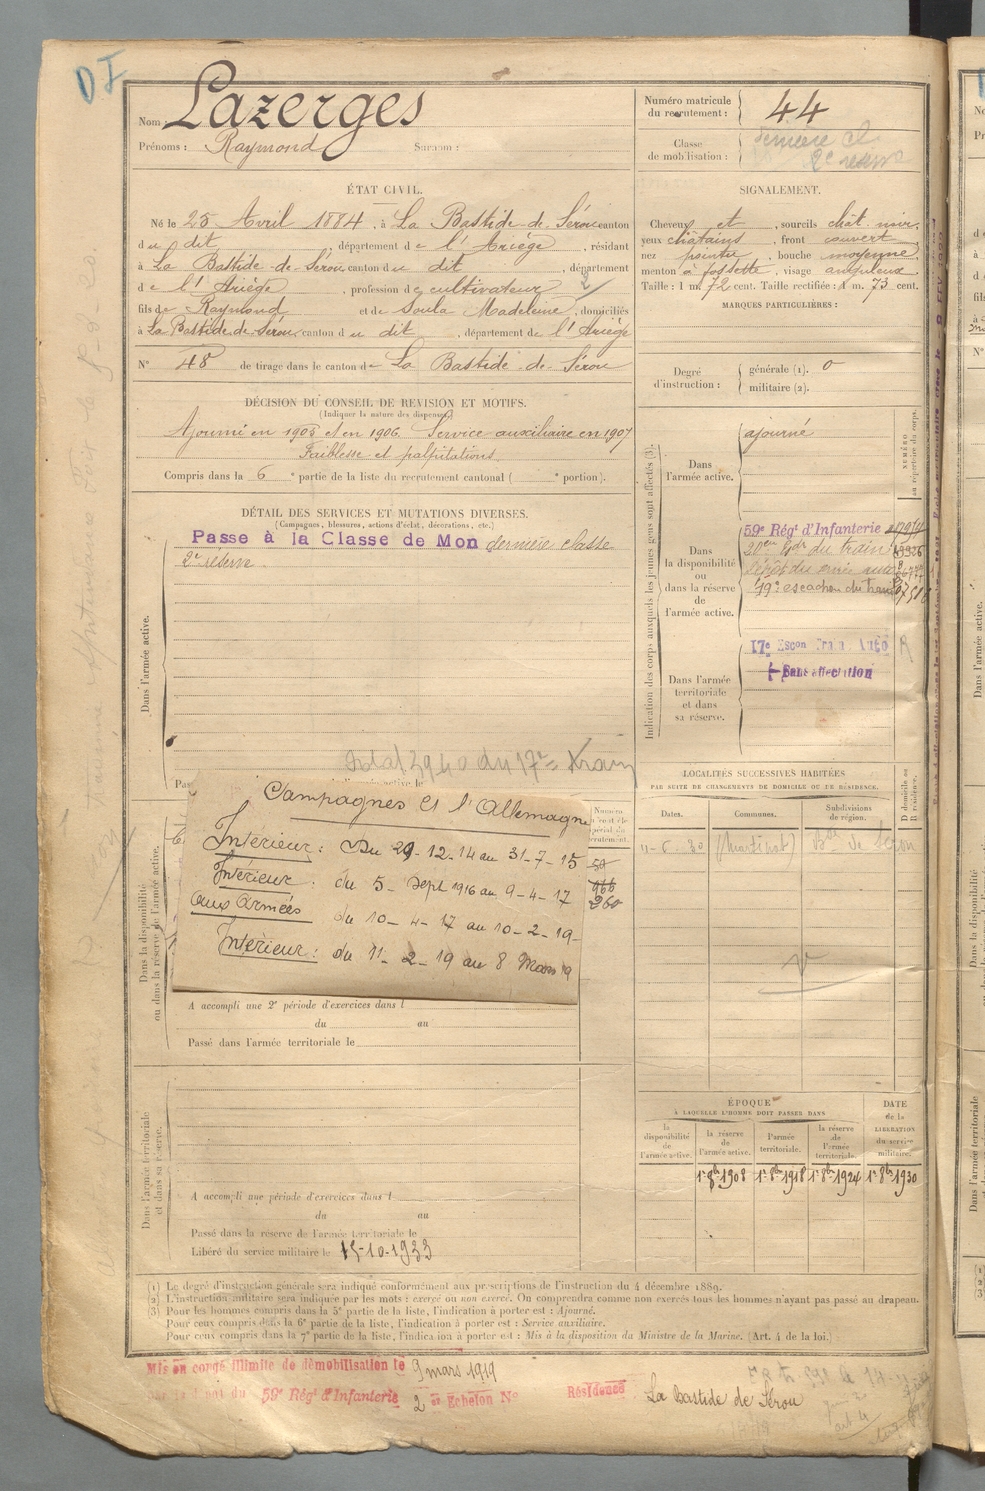 DI
Nom : Lazerges
Prénoms : Raymond Surnom :
Numéro matricule du recrutement : 44
Classe de mobilisation : dernière cl. 2e réserve
ÉTAT CIVIL.
Né le 25 Avril 1884, à La Bastide-de-Sérou canton
du dit, département de l'Ariège, résidant
à La Bastide-de-Sérou canton du dit, département
de l'Ariège, profession de cultivateur
fils de Raymond et de Soula Madeleine, domiciliés
à La Bastide de Sérou, canton du dit, département de l'Ariège
N° 48 de tirage dans le canton de La Bastide-de-Sérou
SIGNALEMENT.
Cheveux et sourcils chât. noir,
yeux châtains, front couvert,
nez pointu, bouche moyenne,
menton à fossette, visage anguleux.
Taille : 1 m. 72 cent. Taille rectifiée : 1 m. 73 cent.
MARQUES PARTICULIÈRES :
Degré d'instruction :
générale (1). 0
militaire (2).
DÉCISION DU CONSEIL DE REVISION ET MOTIFS.
(Indiquer la nature des dispenses.)
Ajourné en 1905 et en 1906. Service auxiliaire en 1907
Faiblesse et palpitations.
Compris dans la 6e partie de la liste du recrutement cantonal ( e portion).
DÉTAIL DES SERVICES ET MUTATIONS DIVERSES.
(Campagnes, blessures, actions d'éclat, décorations, etc.)
Passe à la Classe de Mon dernière classe
2e réserve
Dans l'armée active.
Indication des corps auxquels les jeunes gens sont affectés (3).
NUMÉRO au répertoire du corps.
Dans l'armée active.
ajourné
Dans la disponibilité ou dans la réserve de l'armée active.
59e Régt d'Infanterie
20e Edr du train
19e escadron du train
Dans l'armée territoriale et dans sa réserve.
17e Escon Train Auto R
Sans affectation
17e Train
LOCALITÉS SUCCESSIVES HABITÉES
PAR SUITE DE CHANGEMENTS DE DOMICILE OU DE RÉSIDENCE.
Dates. Communes. Subdivisions de région. D domicile ou R résidence.
11-6-30 Bde de Sérou
Campagnes Ct l'Allemagne
Intérieur : Du 29-12-14 au 31-7-15
Intérieur : du 5-Sept 1916 au 9-4-17
Aux Armées du 10-4-17 au 10-2-19-
Intérieur : du 11-2-19 au 8 Mars 19
260
Dans la disponibilité ou dans la réserve de l'armée active.
A accompli une 2e période d'exercices dans l
du au
Passé dans l'armée territoriale le
Dans l'armée territoriale et dans sa réserve.
A accompli une période d'exercices dans l
du au
Passé dans la réserve de l'armée territoriale le
Libéré du service militaire le 15-10-1933
ÉPOQUE
À LAQUELLE L'HOMME DOIT PASSER DANS
DATE de la LIBÉRATION du service militaire.
la disponibilité de l'armée active.
la réserve de l'armée active.
l'armée territoriale.
la réserve de l'armée territoriale.
1er 8bre 1908 1er 8bre 1918 1er 8bre 1924 1er 8bre 1930
(1) Le degré d'instruction générale sera indiqué conformément aux prescriptions de l'instruction du 4 décembre 1889.
(2) L'instruction militaire sera indiquée par les mots : exercé ou non exercé. On comprendra comme non exercés tous les hommes n'ayant pas passé au drapeau.
(3) Pour les hommes compris dans la 5e partie de la liste, l'indication à porter est : Ajourné.
Pour ceux compris dans la 6e partie de la liste, l'indication à porter est : Service auxiliaire.
Pour ceux compris dans la 7e partie de la liste, l'indication à porter est : Mis à la disposition du Ministre de la Marine. (Art. 4 de la loi.)
Mis en congé illimité de démobilisation le 9 mars 1919
59e Régt d'Infanterie 2 er Echelon N° Résidence La Bastide de Sérou